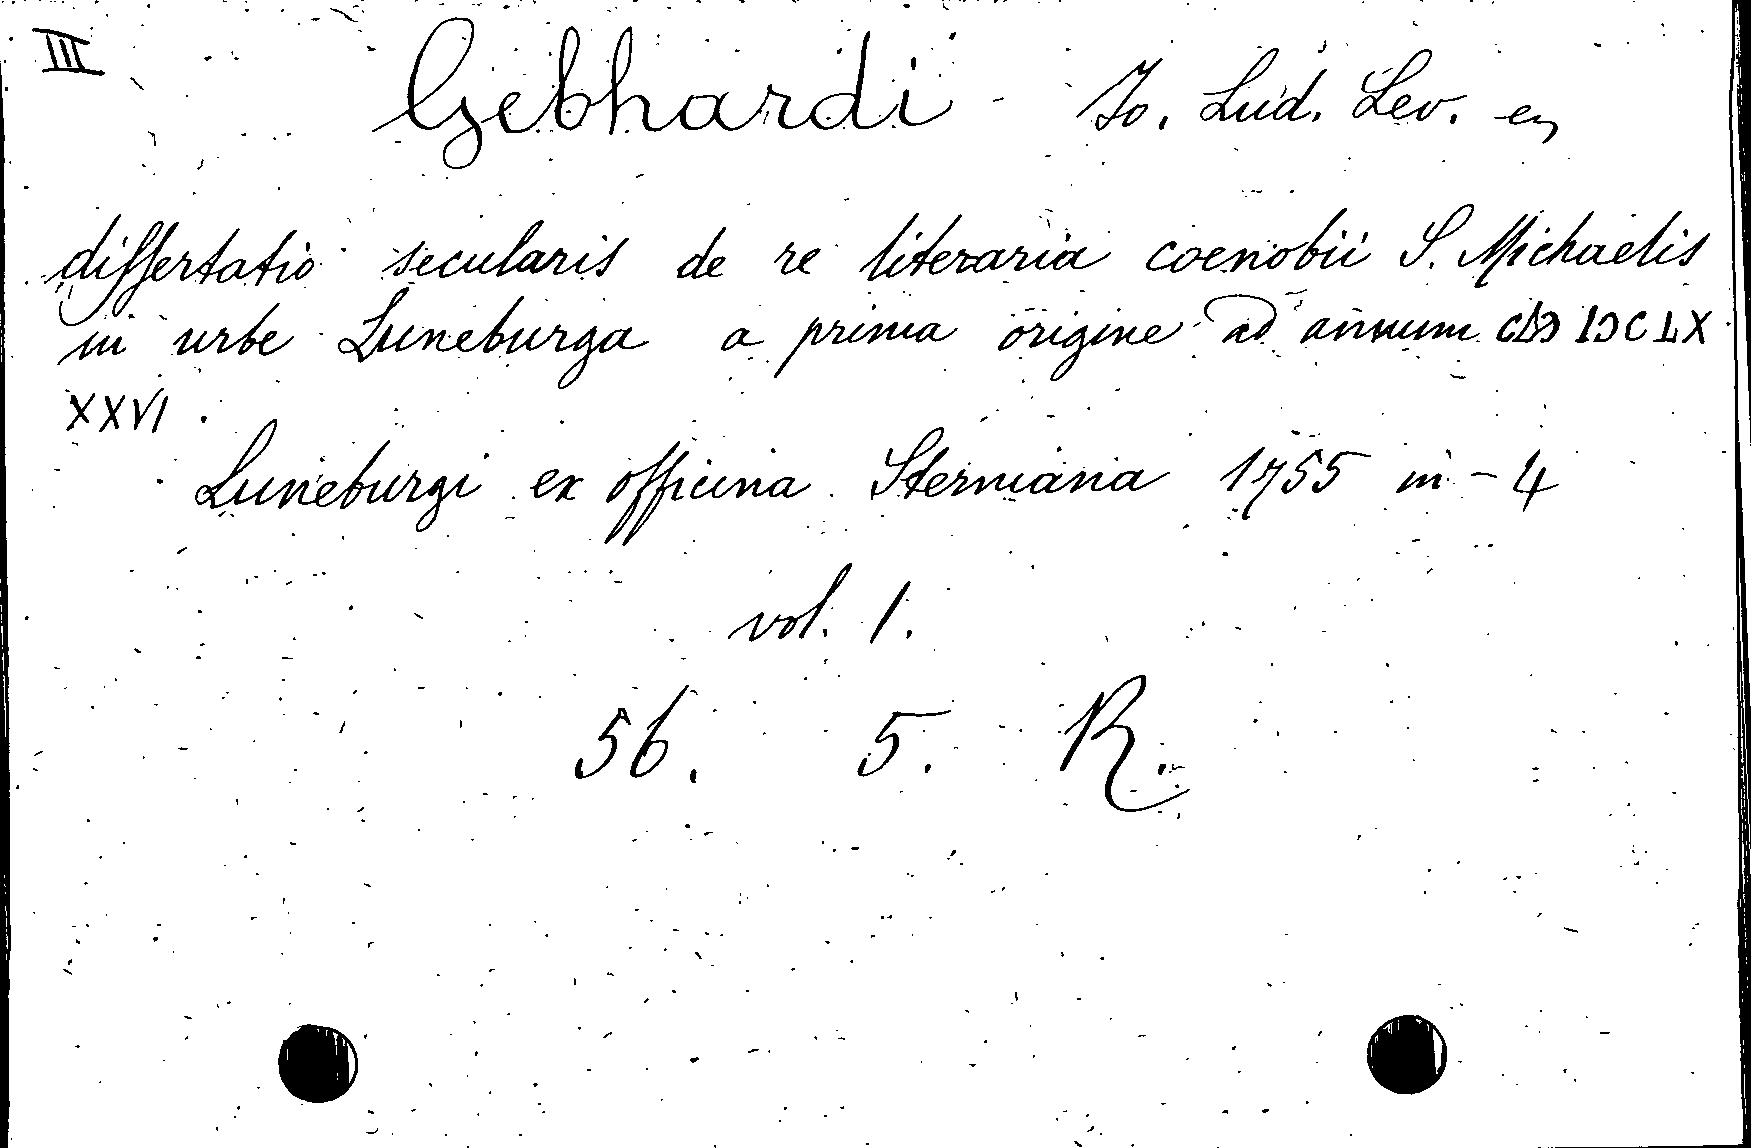 III
Gebhardi Jo. Lud. Lev. en
dissertatio secularis de re literaria coenobii S. Michaelis
in urbe Luneburga a prima origine ad annum CIƆ IƆCLX
XXVI.
Luneburgi ex officina Sterniana 1755 in-4
vol. 1.
56. 5. R.